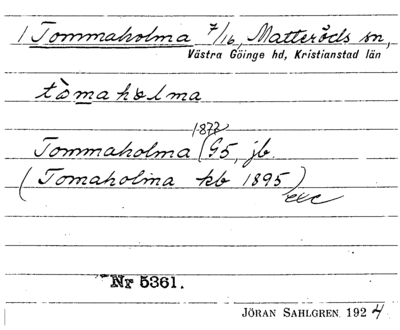 1 Tommaholma 7/16, Matteröds sn,
Västra Göinge hd, Kristianstad län
tòmahɷlma
1872
Tommaholma (G5, jb.
(Tomaholma kb 1895)
etc
Nr 5361.
JÖRAN SAHLGREN 1924